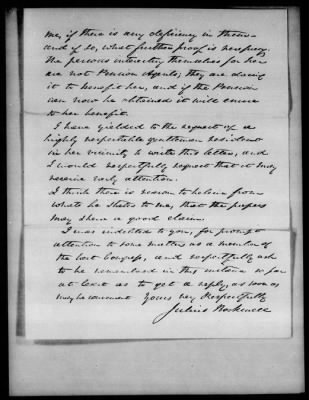 me, if there is any deficiency in them –
and if so, what further proof is necessary.
The persons interesting themselves for her
are not Pension Agents; they are doing
it to benefit her, and if the Pension
can now be obtained it will enure
to her benefit.
I have yielded to the request of a
highly respectable gentleman resident
in her vicinity to write this letter, and
I would respectfully request that it may
receive early attention.
I think there is reason to believe from
what he states to me, that the papers
may show a good claim.
I was indebted to you, for prompt
attention to some matters as a member of
the last Congress, and respectfully ask
to be remembered in this matter so far
at least as to get a reply, as soon as
may be convenient Yours very Respectfully
Julius Rockwell